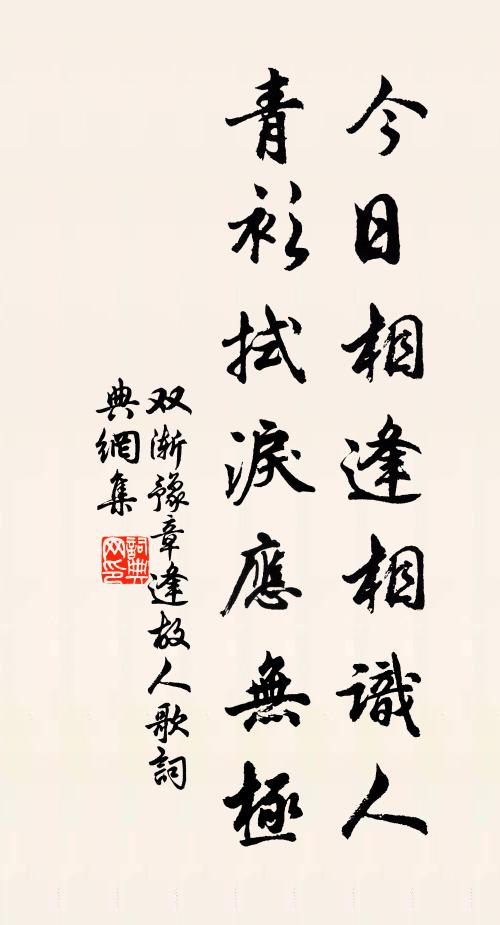 今日相逢相識人
青衫拭淚應無極
双漸豫章逢故人歌詞
典網集
詞典
网印